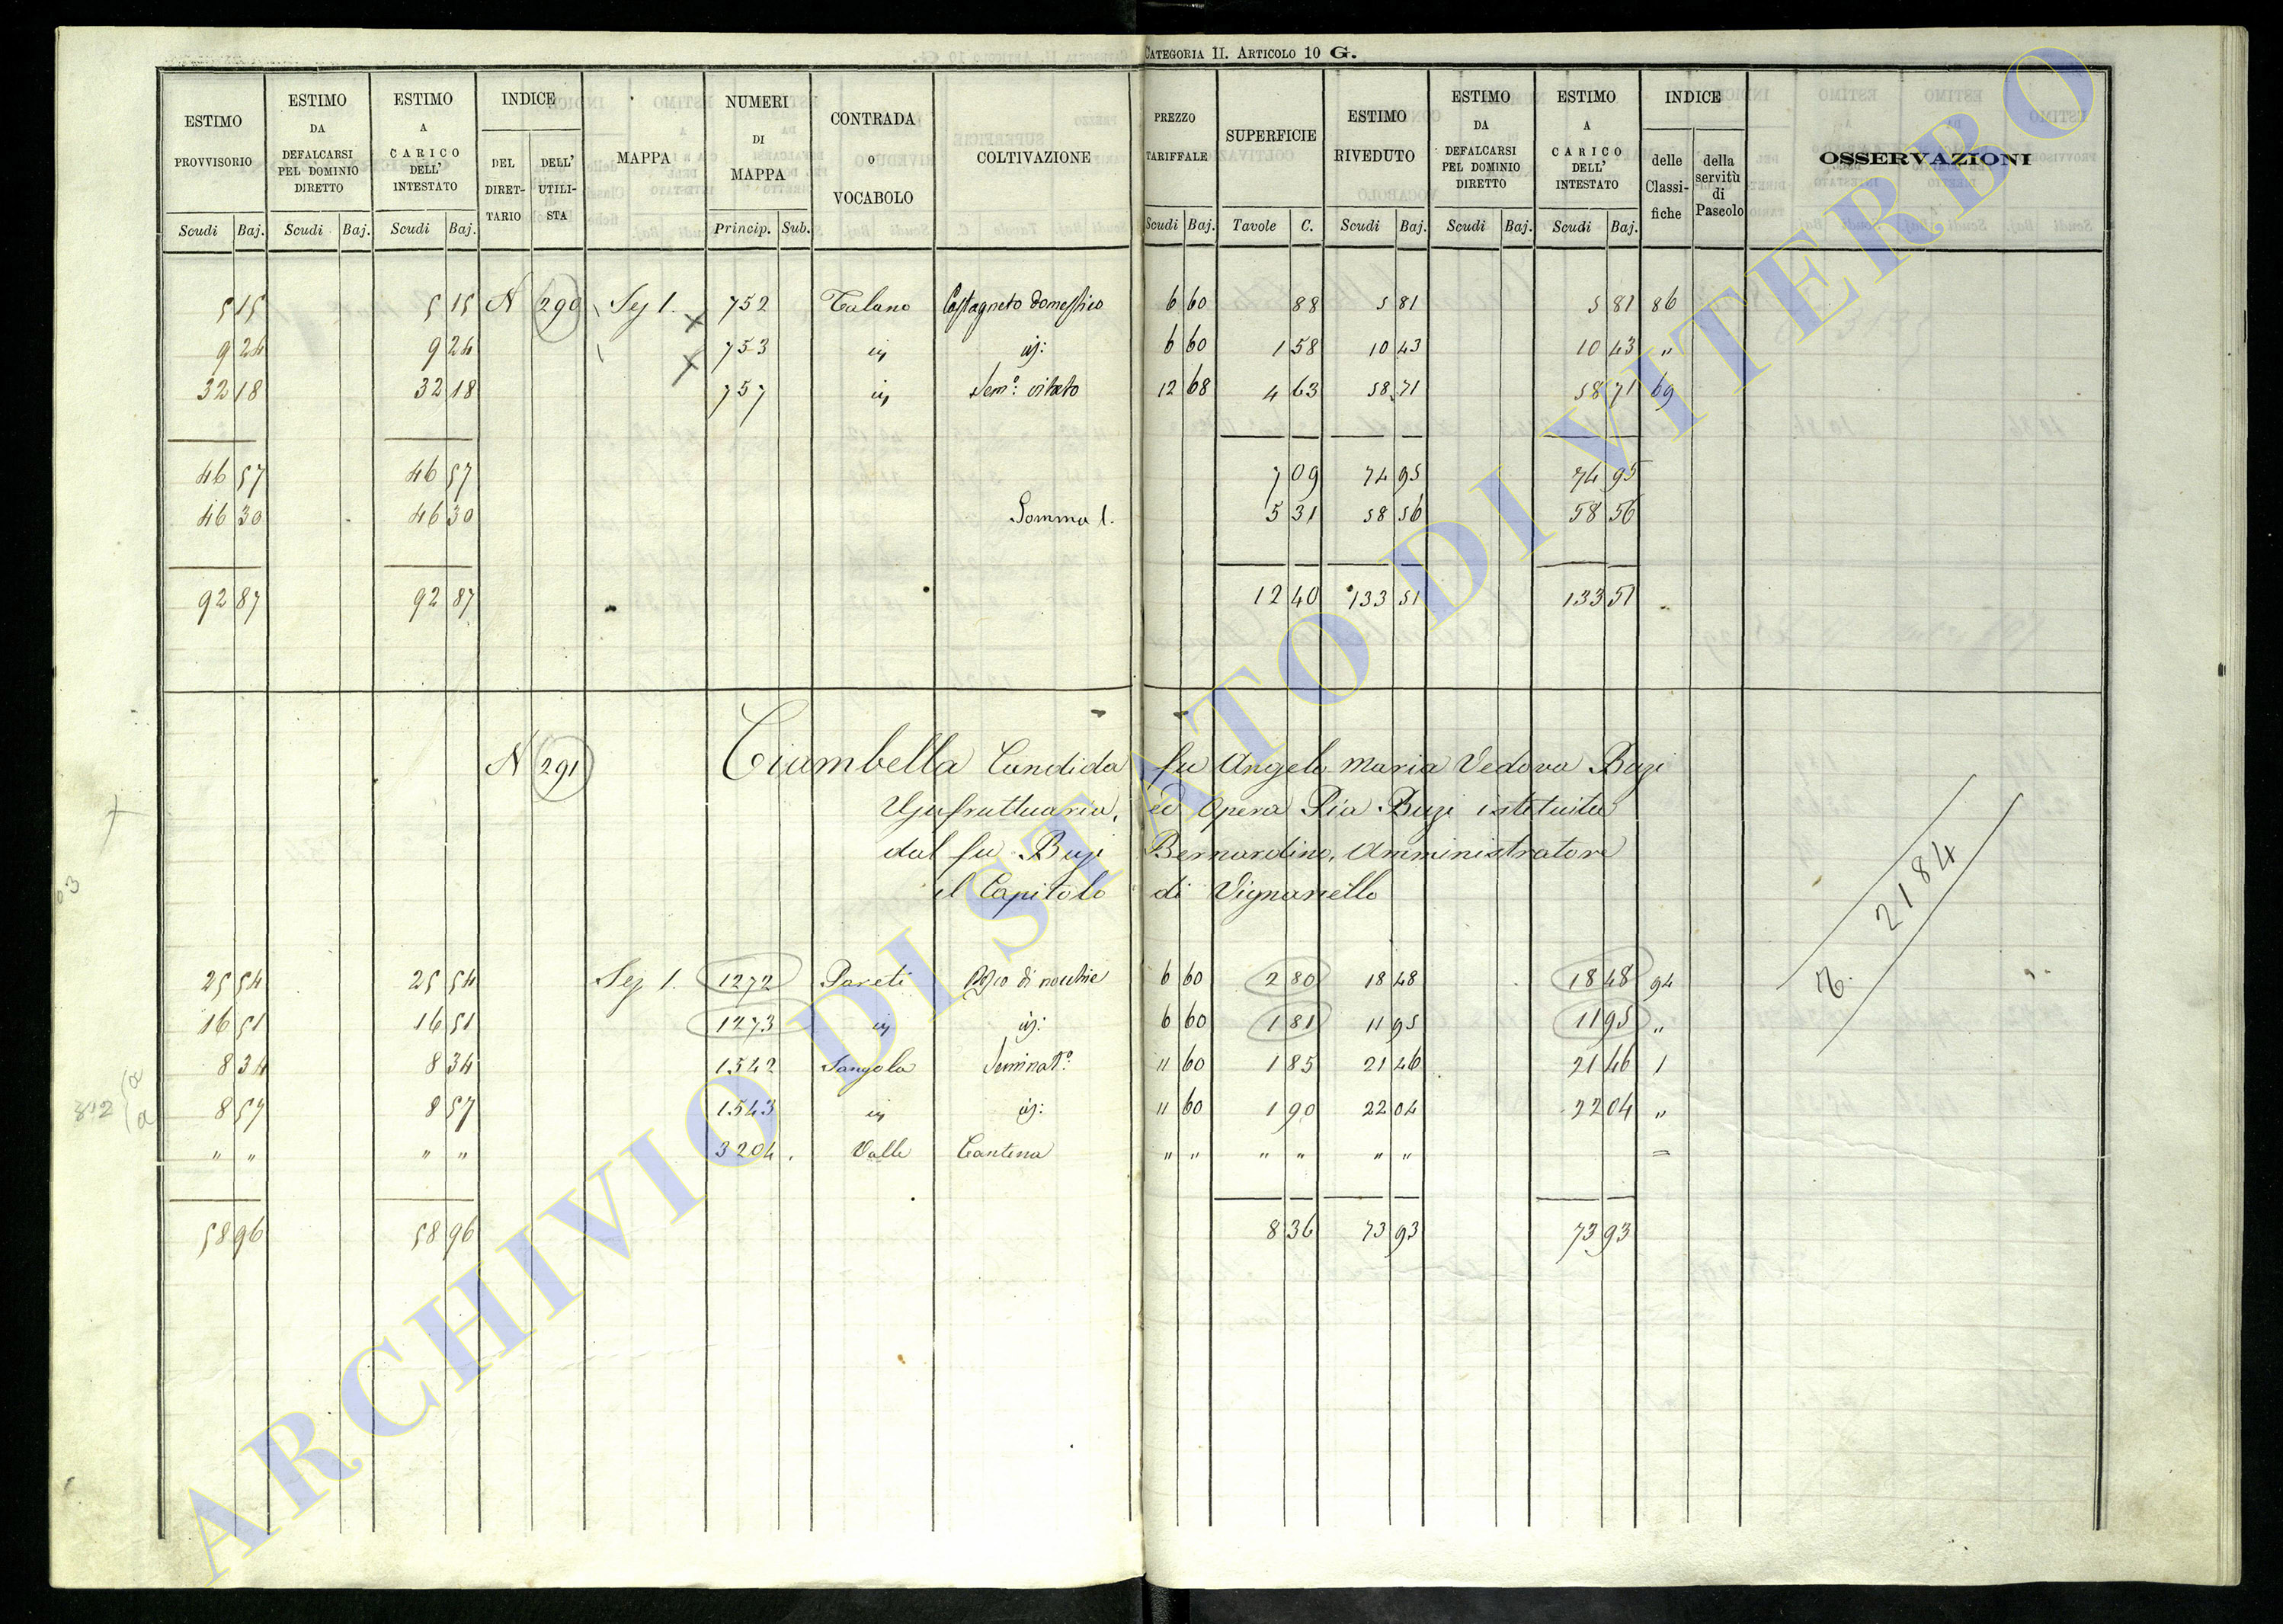 CATEGORIA II. ARTICOLO 10 G.
ESTIMO PROVVISORIO | ESTIMO DA DEFALCARSI PEL DOMINIO DIRETTO | ESTIMO A CARICO DELL' INTESTATO | INDICE DEL DIRET-TARIO | DELL' UTILI-STA | MAPPA | NUMERI DI MAPPA | CONTRADA o VOCABOLO | COLTIVAZIONE | PREZZO TARIFFALE | SUPERFICIE | ESTIMO RIVEDUTO | ESTIMO DA DEFALCARSI PEL DOMINIO DIRETTO | ESTIMO A CARICO DELL' INTESTATO | INDICE delle Classi-fiche | della servitù di Pascolo | OSSERVAZIONI
Scudi Baj. Scudi Baj. Scudi Baj. Princip. Sub. Scudi Baj. Tavole C. Scudi Baj. Scudi Baj. Scudi Baj.
5 15 5 15 N 290 Sez 1. 752 Talano Castagneto domestico 6 60 88 5 81 5 81 86
9 24 9 24 753 id: 6 60 1 58 10 43 10 43 "
32 18 32 18 757 Sem.o: vitato 12 68 4 63 58 71 58 71 69
46 57 46 57 7 09 74 95 74 95
46 30 46 30 Somma 1. 5 31 58 56 58 56
92 87 92 87 12 40 133 51 133 51
N 291 Ciambella Candida fu Angelo Maria Vedova Buzi
Usufruttuaria, ed Opera Pia Buzi istituita
dal fu Buzi Bernardino, Amministratore
il Capitolo di Vignanello
2184
25 54 25 54 Sez 1. 1272 Pareti di nocchie 6 60 2 80 18 48 18 48 94
16 51 16 51 1273 id: 6 60 1 81 11 95 11 95 "
8 34 8 34 1542 Sangola Seminat.o: " 60 1 85 21 46 21 46 1
8 57 8 57 1543 id: " 60 1 90 22 04 22 04 "
" " " " 3204. Valle Cantina " " " " " " =
58 96 58 96 8 36 73 93 73 93
ARCHIVIO DI STATO DI VITERBO